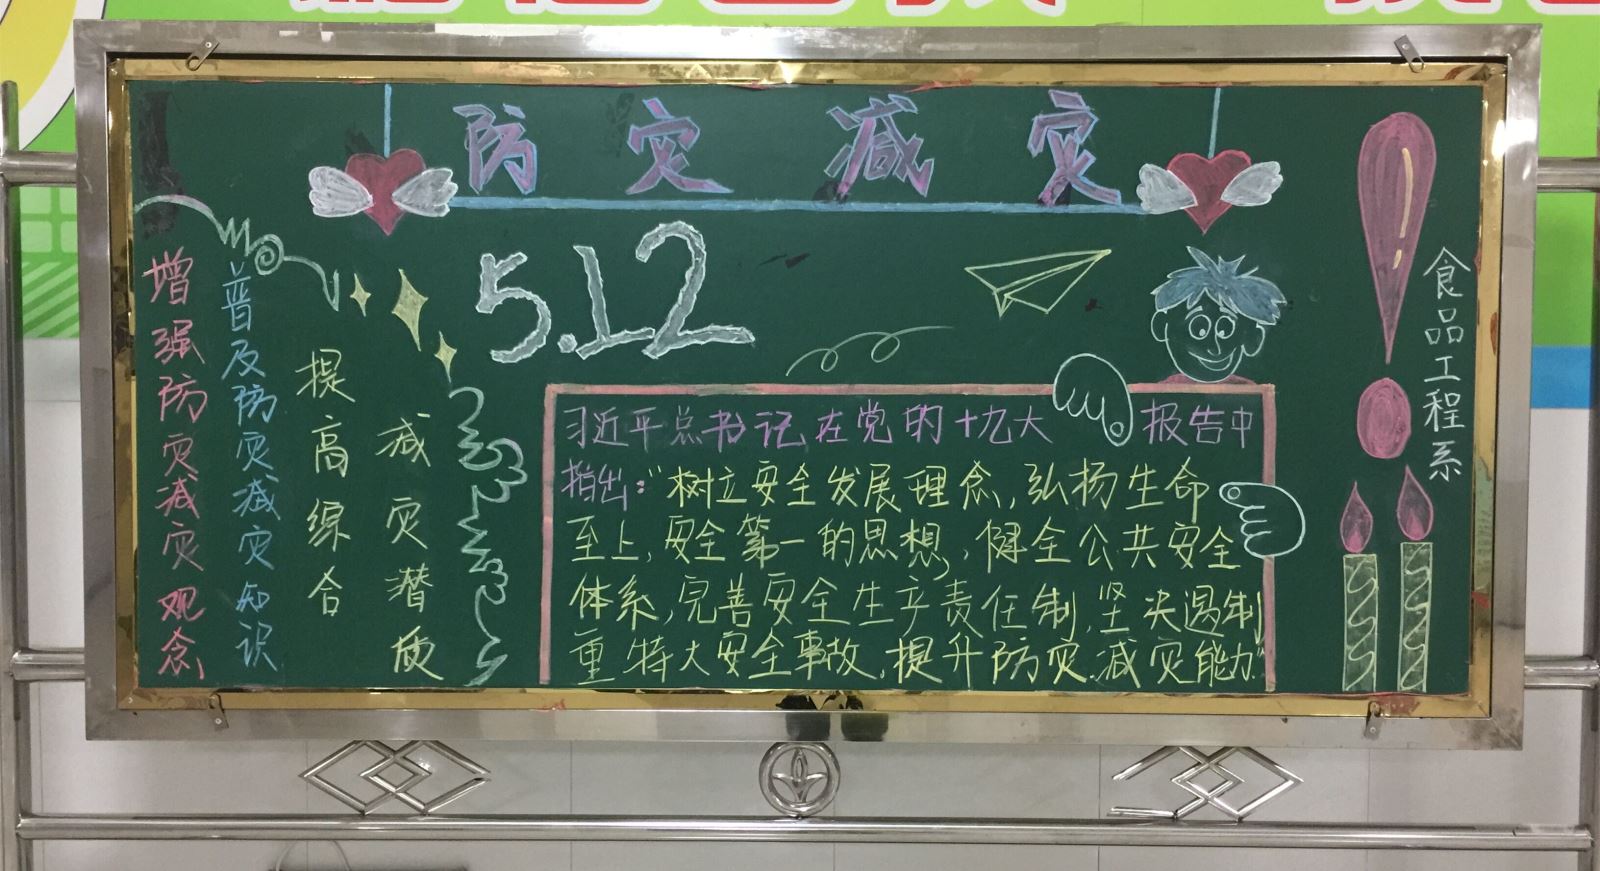 防灾减灾
5.12
增强防灾减灾观念
普及防灾减灾知识
提高综合
减灾潜质
习近平总书记在党的十九大报告中
指出:"树立安全发展理念,弘扬生命
至上,安全第一的思想,健全公共安全
体系,完善安全生产责任制,坚决遏制
重特大安全事故,提升防灾减灾能力"
食品工程系